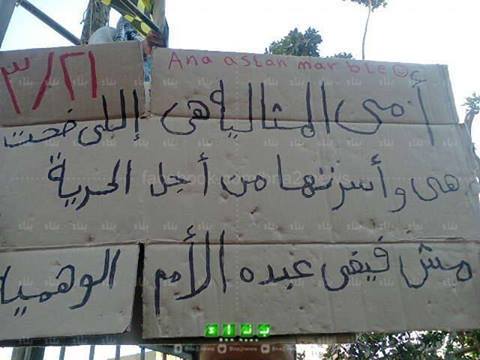 ٣/٢١
Ana aslan marble
أمى المثالية هى إللى ضحت
هى وأسرتها من أجل الحرية
مش فيفى عبده الأم الوهمية
بناء